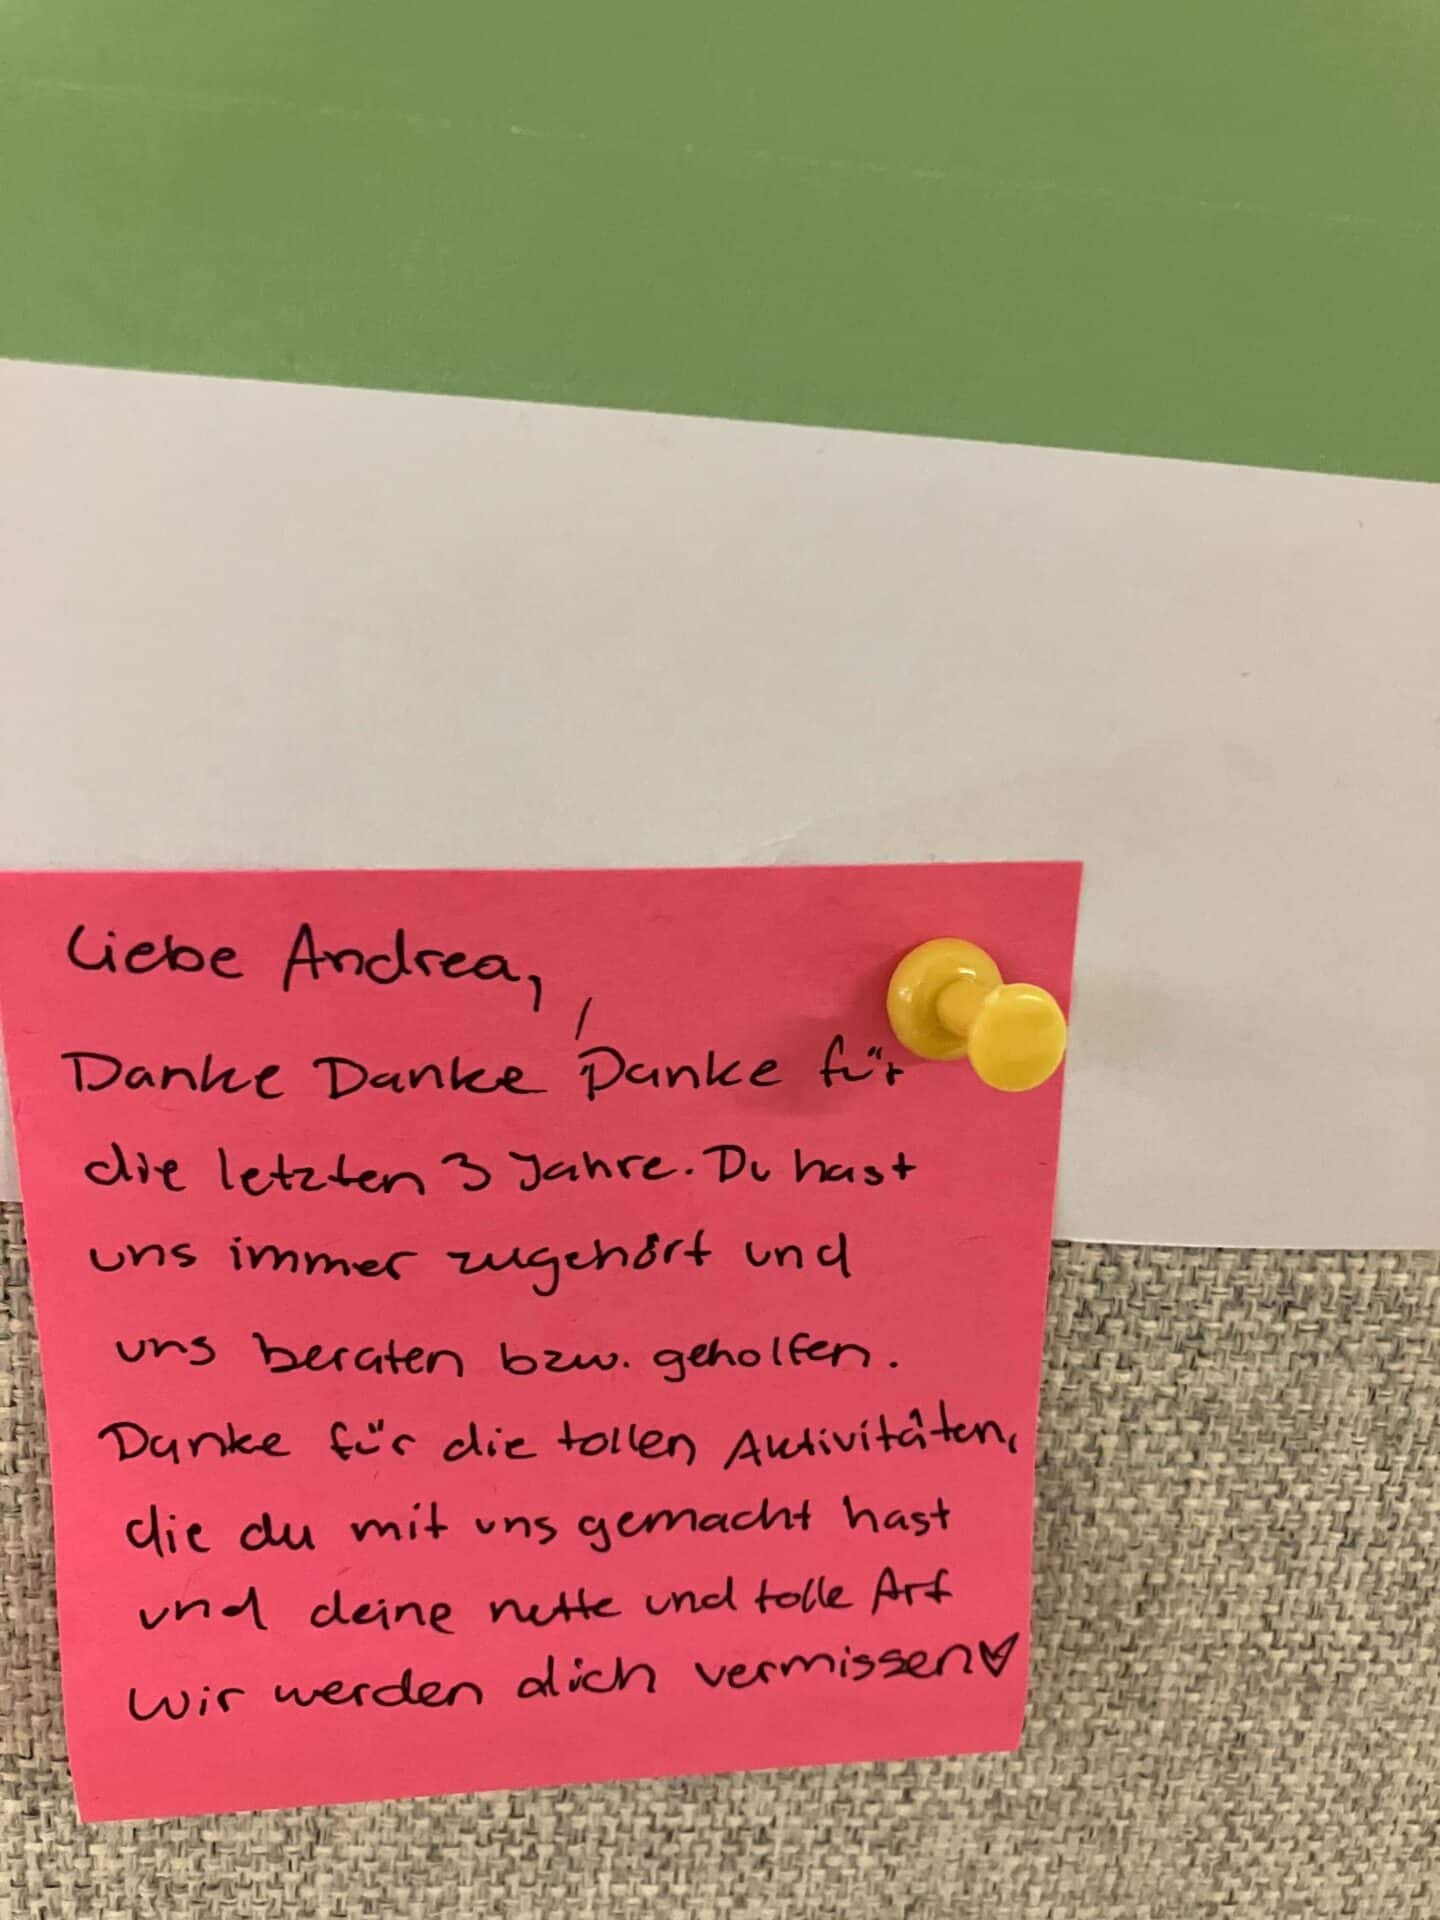 Liebe Andrea,
Danke Danke Danke für
die letzten 3 Jahre. Du hast
uns immer zugehört und
uns beraten bzw. geholfen.
Danke für die tollen Aktivitäten,
die du mit uns gemacht hast
und deine nette und tolle Art
wir werden dich vermissen♡